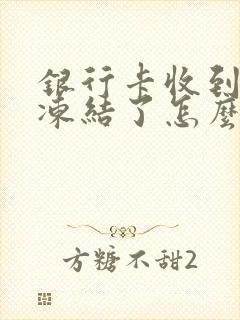 銀行卡收到
凍結了怎麼
方糖不甜2